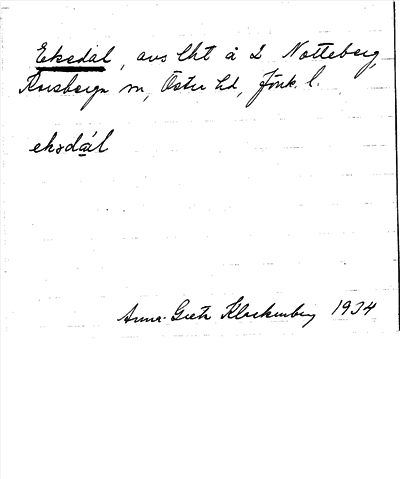 Eksdal, avs lht å 2 Notteberg,
Korsberga sn, Östra hd, Jönk. l.
eksdál
Anna-Greta Klockenberg 1934